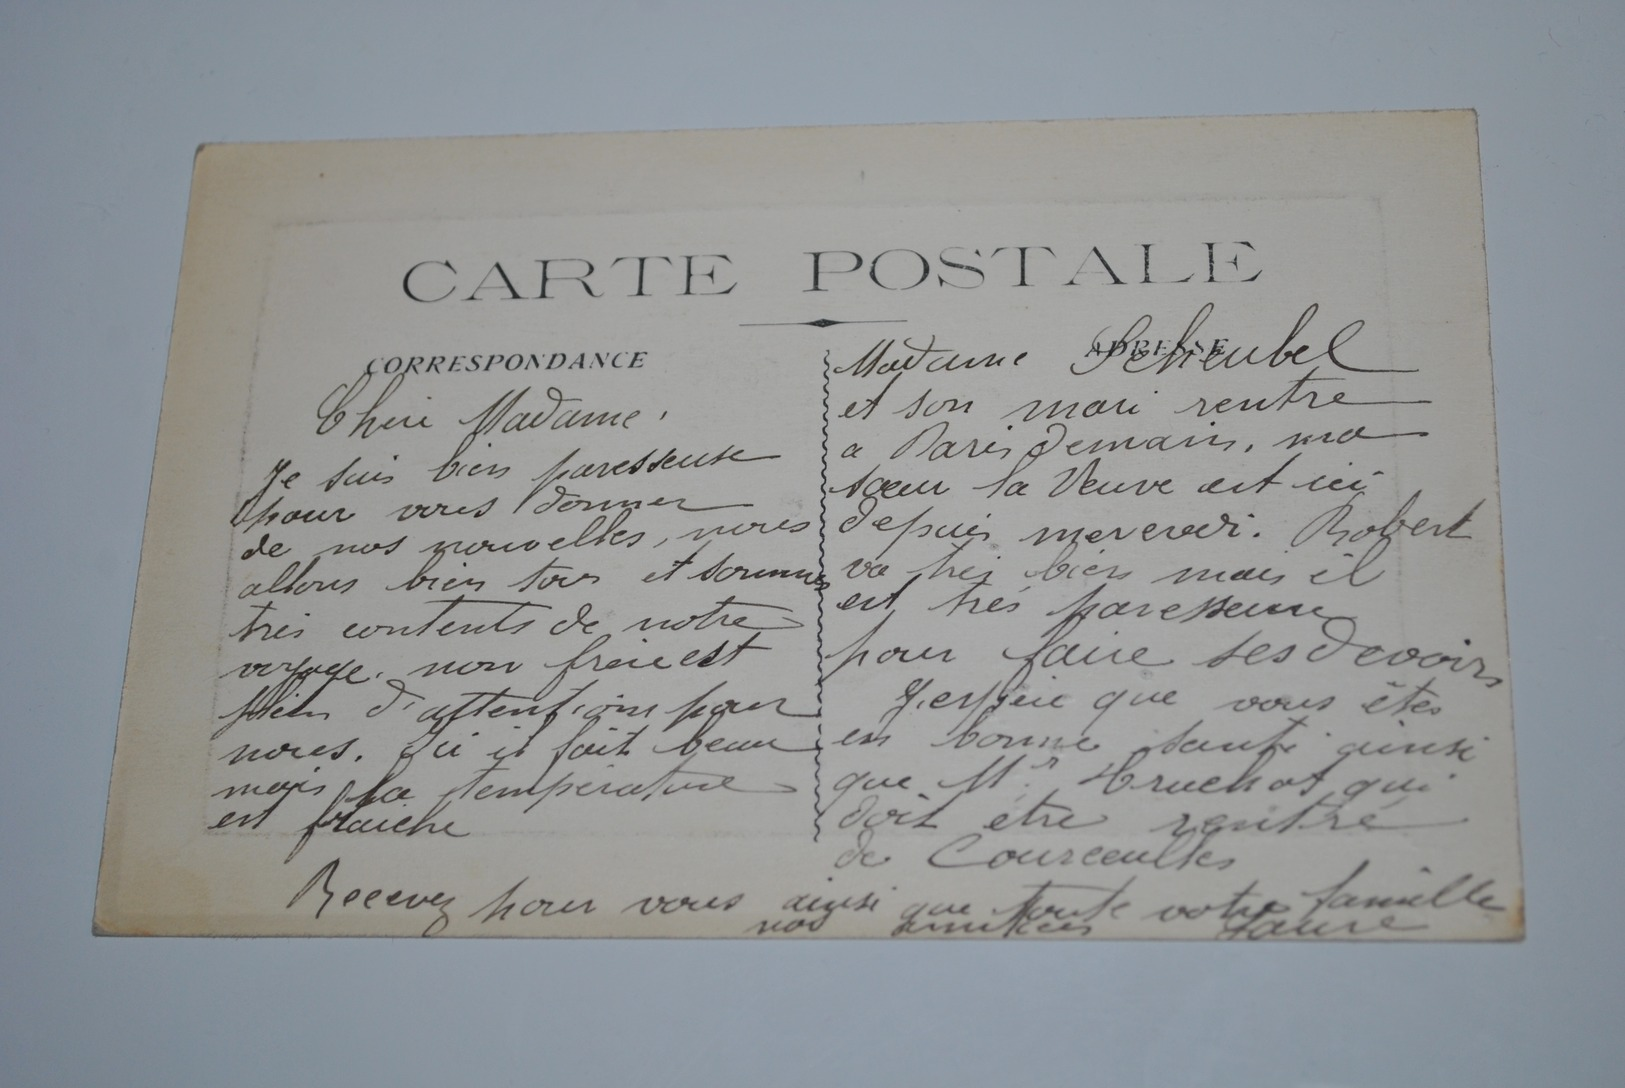 CARTE POSTALE
CORRESPONDANCE
ADRESSE
Chère Madame,
Je suis bien paresseuse
pour vous donner
de nos nouvelles, nous
allons bien tous et sommes
très contents de notre
voyage. mon frère est
plein d'attention pour
nous. Ici il fait beau
mais la température
est fraiche
Madame Scheubel
et son mari rentre
a Paris demain, ma
sœur la Veuve est ici
depuis mercredi. Robert
va très bien mais il
est très paresseux
pour faire ses devoirs
J'espère que vous êtes
en bonne santé ainsi
que Mr. qui
doit être rentré
de Courceulles
Recevez pour vous ainsi que toute votre famille
nos amitiés Laure